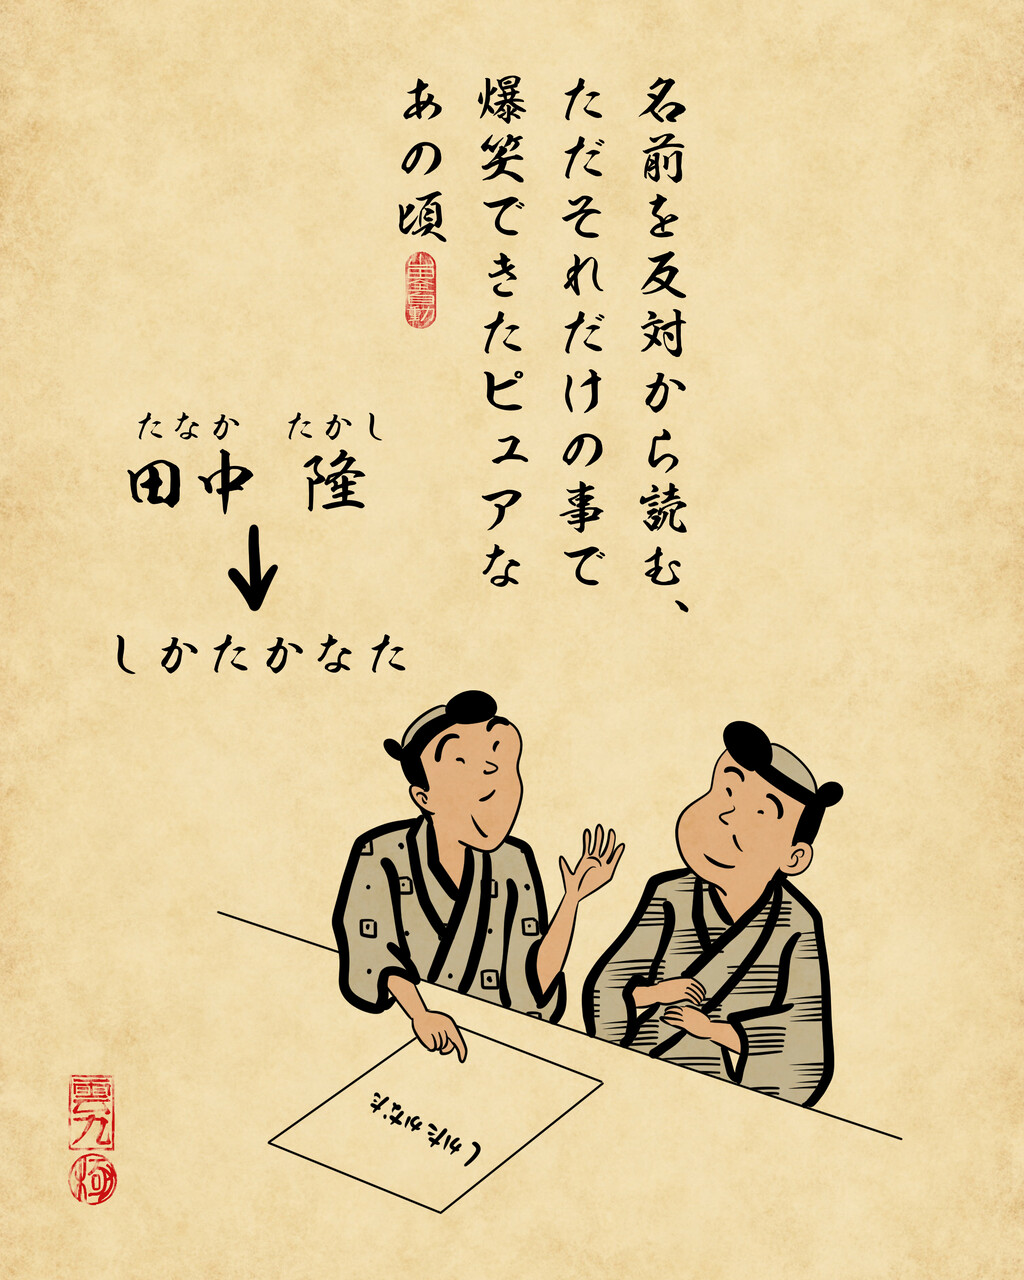 名前を反対から読む、
ただそれだけの事で
爆笑できたピュアな
あの頃
たなか たかし
田中 隆
しかたかなた
しかたかなた